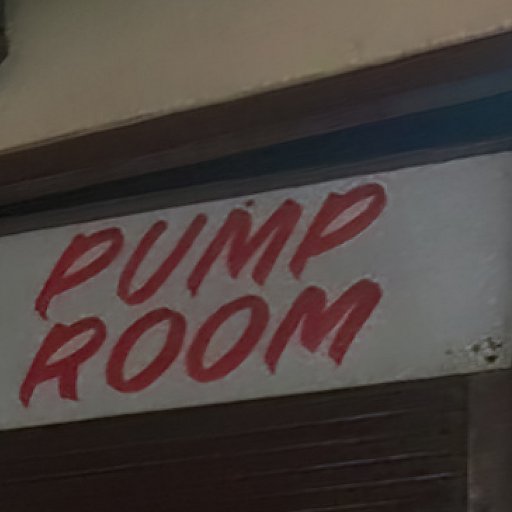 PUMP
ROOM